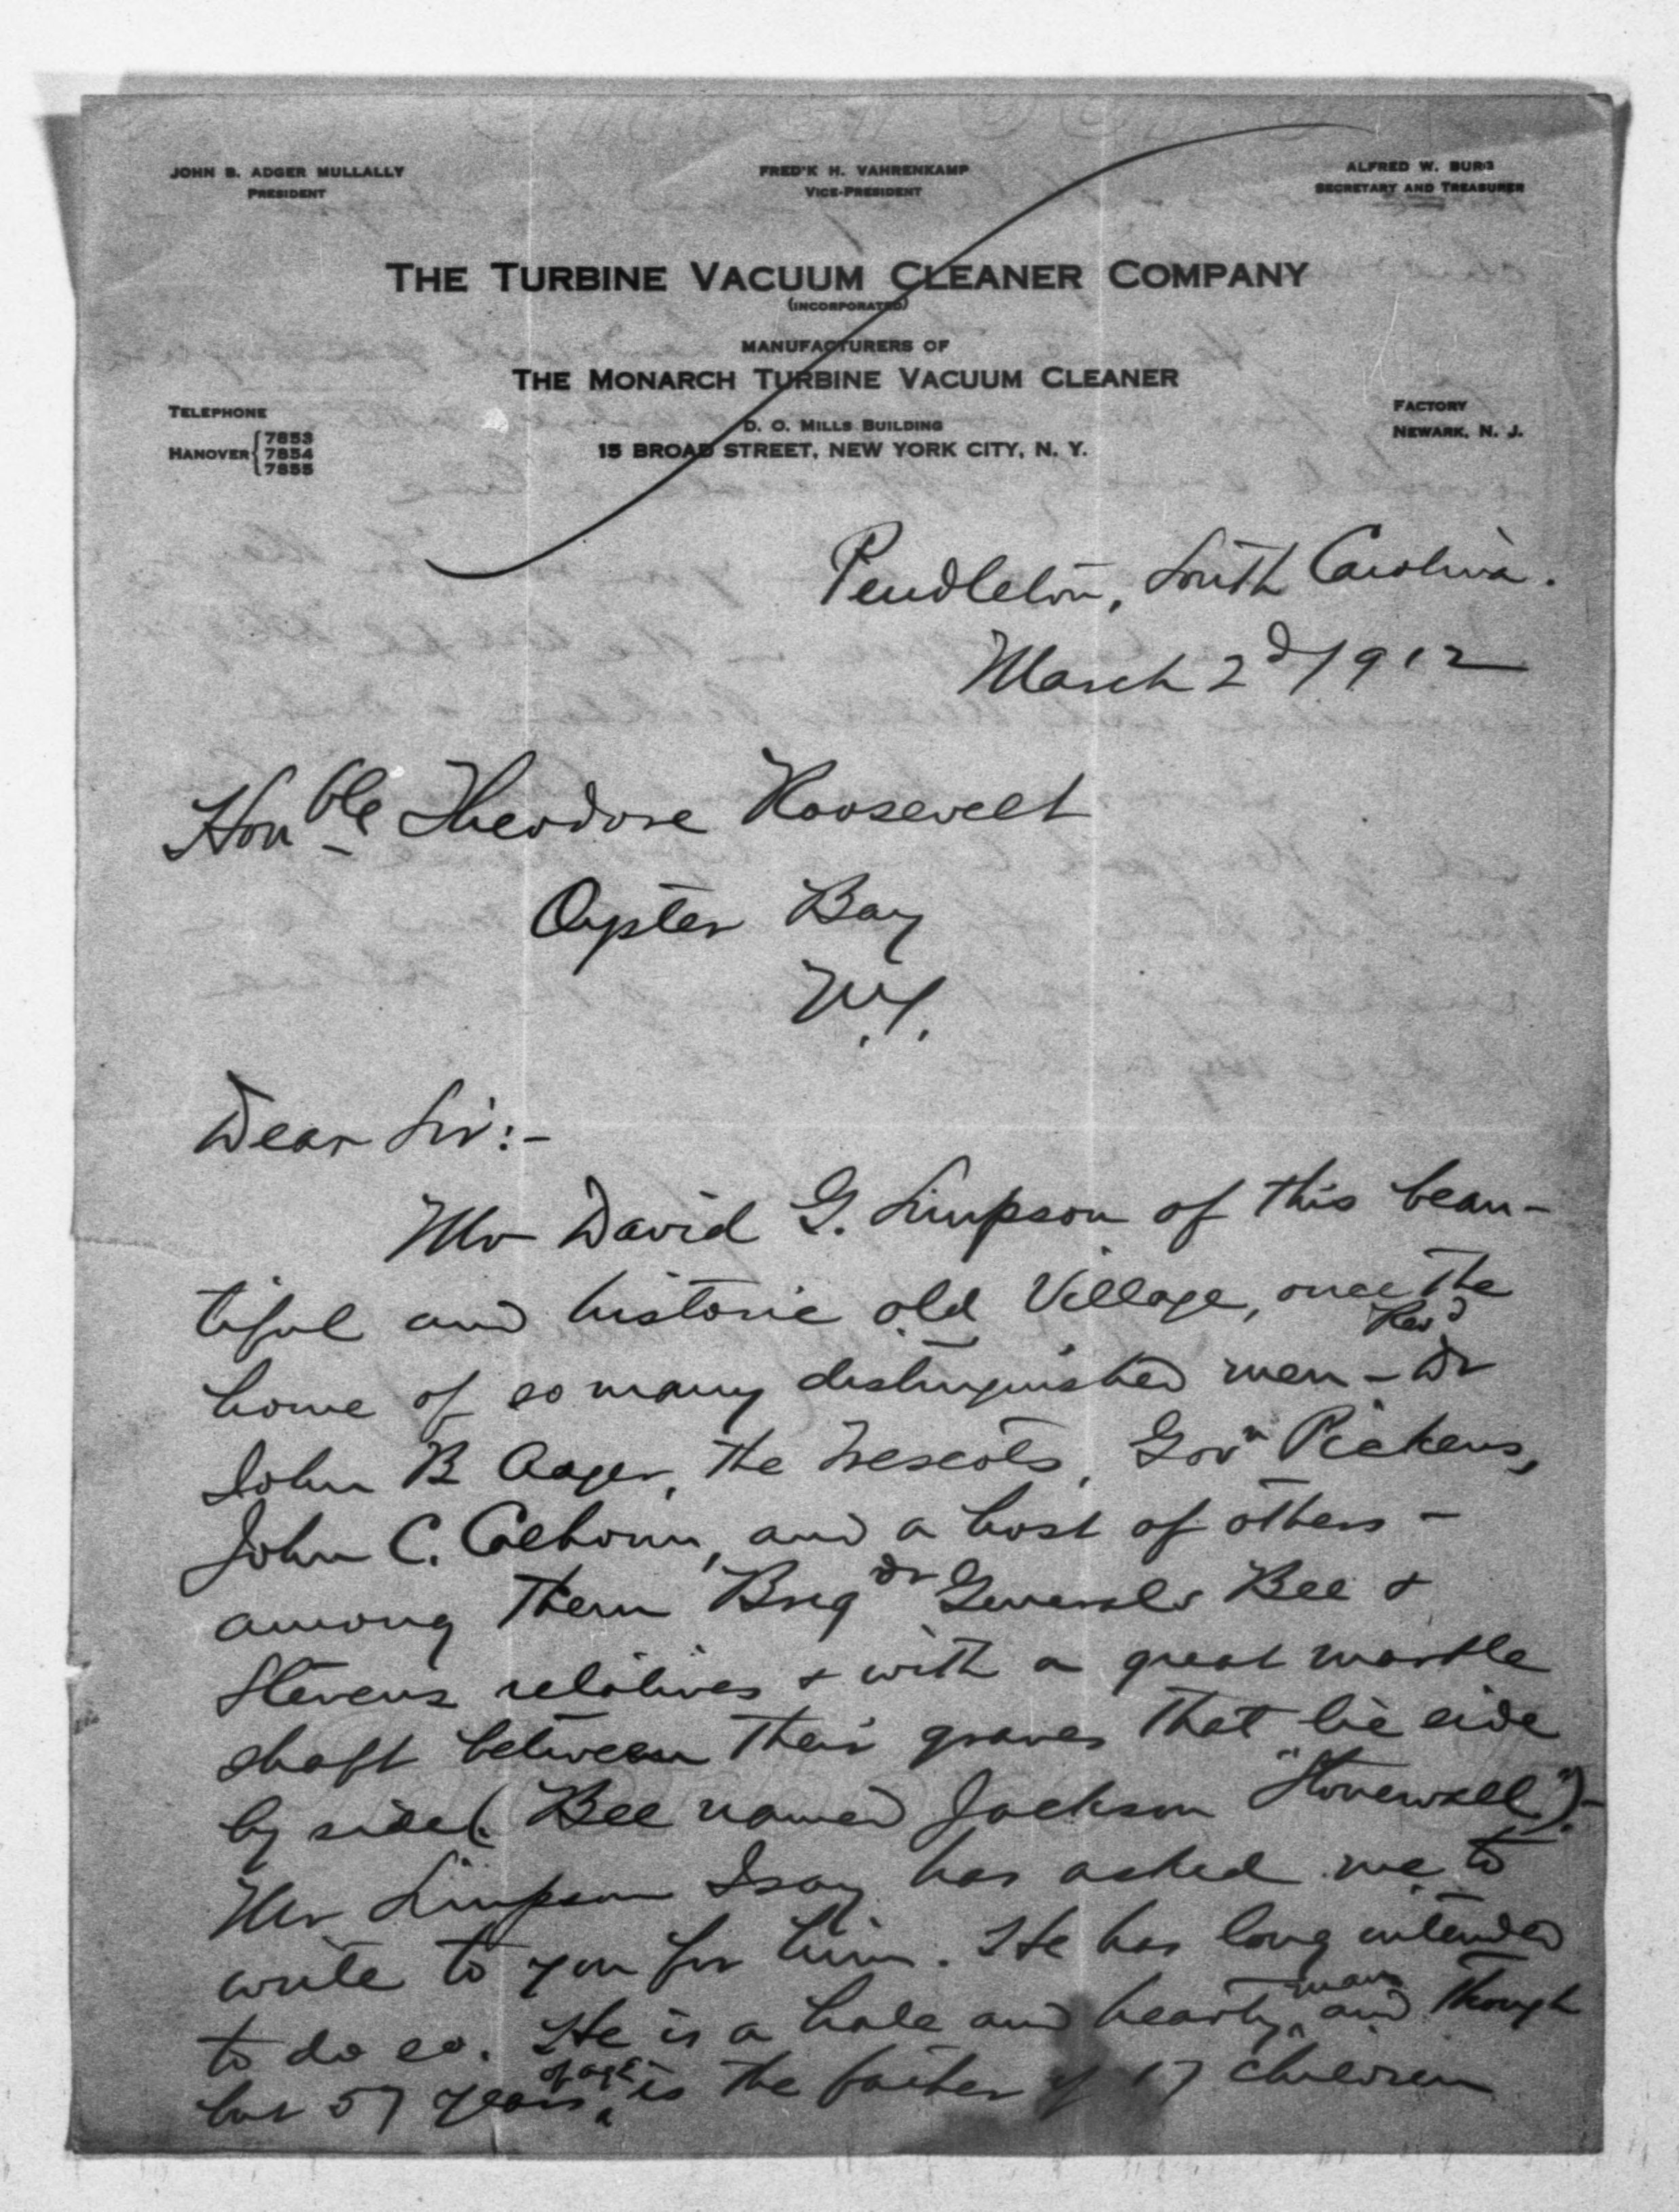 JOHN B. ADGER MULLALLY
PRESIDENT
FRED'K H. VAHRENKAMP
VICE-PRESIDENT
ALFRED W. BURG
SECRETARY AND TREASURER
THE TURBINE VACUUM CLEANER COMPANY
(INCORPORATED)
MANUFACTURERS OF
THE MONARCH TURBINE VACUUM CLEANER
TELEPHONE
HANOVER { 7853
7854
7855
D. O. MILLS BUILDING
15 BROAD STREET, NEW YORK CITY, N. Y.
FACTORY
NEWARK, N. J.
Pendleton, South Carolina.
March 2d 1912
Honble Theodore Roosevelt
Oyster Bay
N.Y.
Dear Sir:-
Mr David G. Simpson of this beau-
tiful and historic old Village, once the
home of so many distinguished men - Revd Dr
John B Adger, the Trescots, Govn Pickens,
John C. Calhoun, and a host of others -
among them Brigdr Generals Bee &
Stevens relatives & with a great marble
shaft between their graves that lie side
by side (Bee named Jackson "Stonewall") -
Mr Simpson I say has asked me to
write to you for him. He has long intended
to do so. He is a hale and hearty man and though
but 57 years of age is the father of 17 children